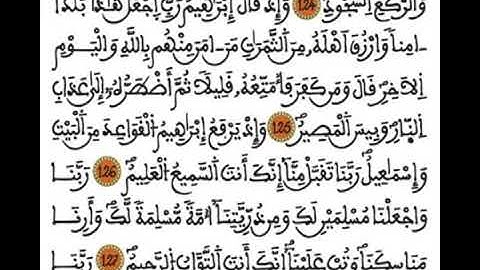 وَالرُّكَّعِ السُّجُودِ 124 وَإِذْ قَالَ إِبْرَاهِيمُ رَبِّ اجْعَلْ هَٰذَا بَلَدًا
ـامِنًا وَارْزُقْ أَهْلَهُ مِنَ الثَّمَرَاتِ مَنَ ـامَنَ مِنْهُم بِاللَّهِ وَالْيَوْمِ
اِلَاخِرِ قَالَ وَمَن كَفَرَ فَأُمَتِّعُهُ قَلِيلًا ثُمَّ أَضْطَرُّهُ إِلَىٰ عَذَابِ
النّارِ وَبِيسَ الْمَصِيرُ 125 وَإِذْ يَرْفَعُ إِبْرَاهِيمُ الْقَوَاعِدَ مِنَ الْبَيْتِ
وَإِسْمَاعِيلُ رَبَّنَا تَقَبَّلْ مِنَّا إِنَّكَ أَنتَ السَّمِيعُ الْعَلِيمُ 126 رَبَّنَا
وَاجْعَلْنَا مُسْلِمَيْنِ لَكَ وَمِن ذُرِّيَّتِنَا أُمَّةً مُّسْلِمَةً لَّكَ وَأَرِنَا
مَنَاسِكَنَا وَتُبْ عَلَيْنَا إِنَّكَ أَنتَ التَّوَّابُ الرَّحِيمُ 127 رَبَّنَا